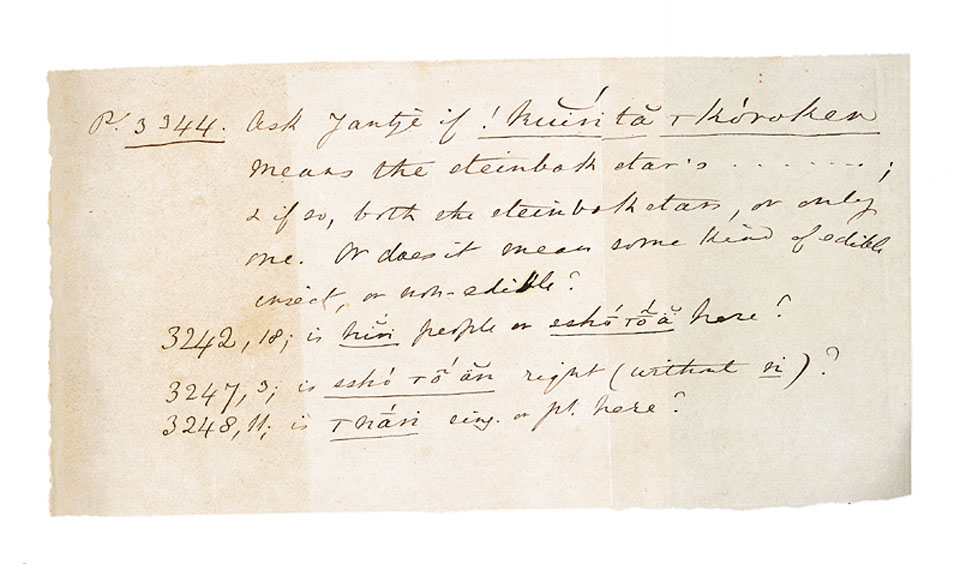 P. 3344. Ask Jantje if !kŭĭsi tă ⊤kóroken
means the steinbok star's . . . . . . . ;
& if so, both the steinbok stars, or only
one. Or does it mean some kind of edible
insect, or non-edible?
3242, 18; is people or here?
3247, 3; is right (without ?
3248, 11; is sing. or pl. here?